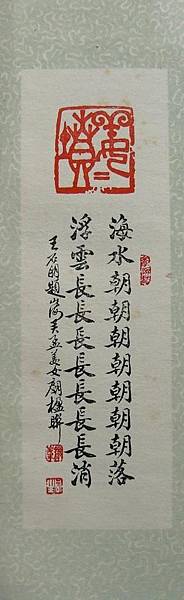 海水朝朝朝朝朝朝朝落
浮雲長長長長長長長消
題山海关孟姜女廟楹聯